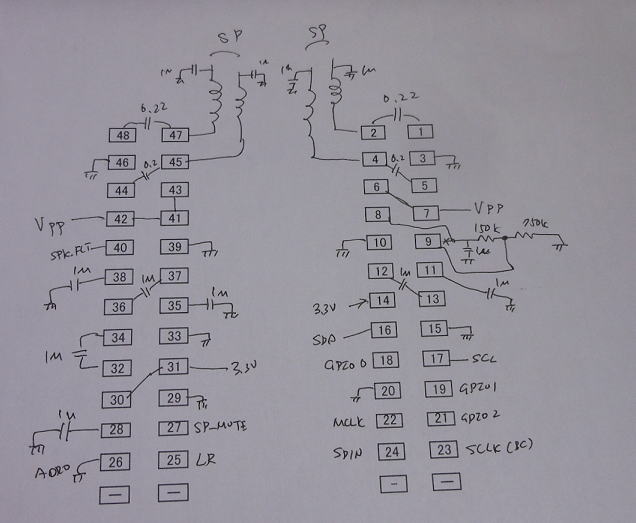 SP SP
1μ 1μ 1μ 1μ
0.22 0.22
48 47 2 1
46 45 4 3
0.2 0.2
44 43 6 5
Vpp 42 41 8 7 Vpp
150K 750K
SPK.FLT 40 39 10 9
1μ
1μ 38 1μ 37 12 1μ 11
36 35 1μ 3.3V 14 13 1μ
34 33 SDA 16 15
1μ
32 31 3.3V GPIO0 18 17 SCL
30 29 20 19 GPIO1
1μ
28 27 SP_MUTE MCLK 22 21 GPIO2
ADR0 26 25 LR SDIN 24 23 SCLK (BC)
— — - —